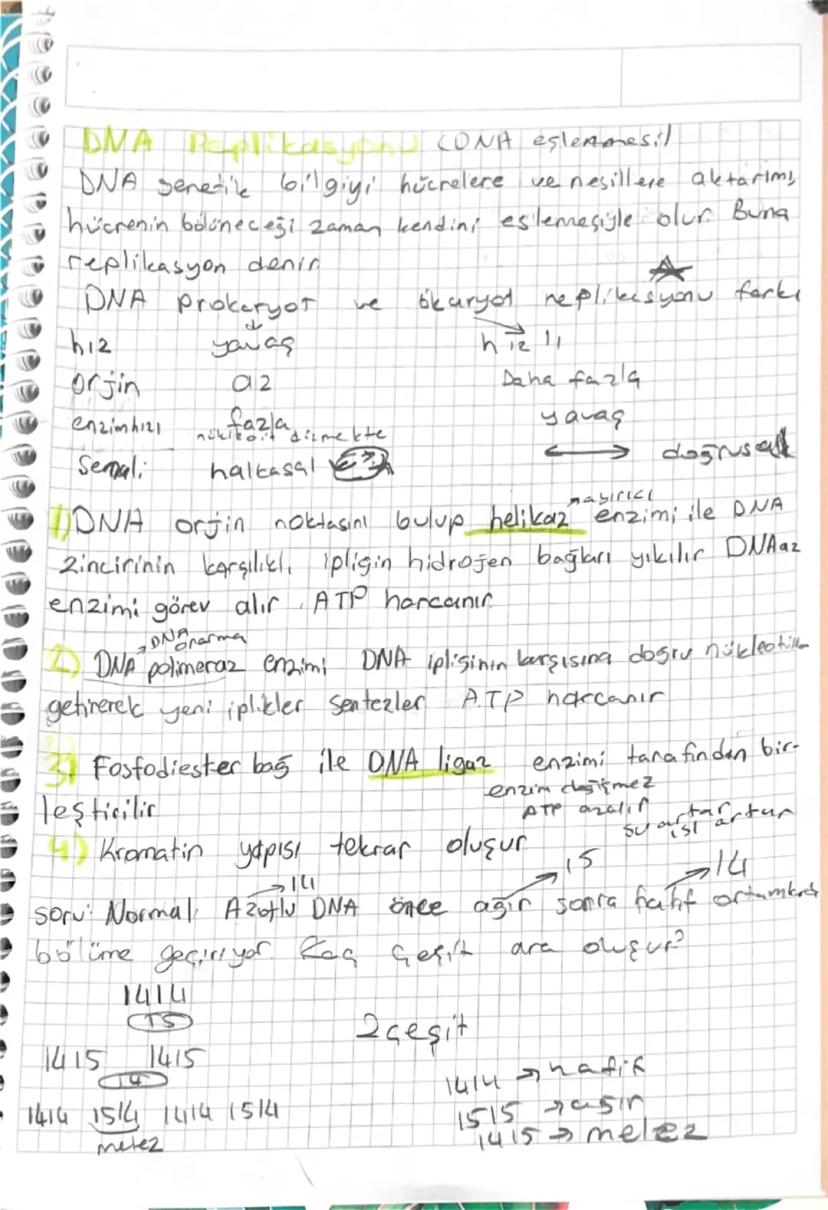 DNA Replikasyonu (DNA eşlenmesi)
DNA genetik bilgiyi hücrelere ve nesillere aktarımı
hücrenin bölüneceği zaman kendini eşlemesiyle olur. Buna
replikasyon denir.
DNA prokaryot ve ökaryot replikasyonu farkı
hız yavaş hızlı
orjin az Daha fazla
enzim hızı fazla yavaş
nükleotit dizmekte
Şemali halkasal doğrusal
1) DNA orjin noktasını bulup helikaz enzimi ile DNA
ayırıcı
zincirinin karşılıklı ipliğin hidrojen bağları yıkılır DNAaz
enzimi görev alır. ATP harcanır.
DNA onarma
2) DNA polimeraz enzimi DNA ipliğinin karşısına doğru nükleotit
getirerek yeni iplikler sentezler ATP harcanır
3) Fosfodiester bağ ile DNA ligaz enzimi tarafından bir-
leştirilir
enzim değişmez
ATP azalır su artar
ısı artar
4) Kromatin yapısı tekrar oluşur
14 15 14
soru: Normal Azotlu DNA önce ağır sonra hafif ortamkda
bölüme geçiriyor. Kaç çeşit ara oluşur?
1414
15
2 çeşit
1415 1415
14
1414 1514 1414 1514
melez
1414 → hafif
1515 → ağır
1415 → melez